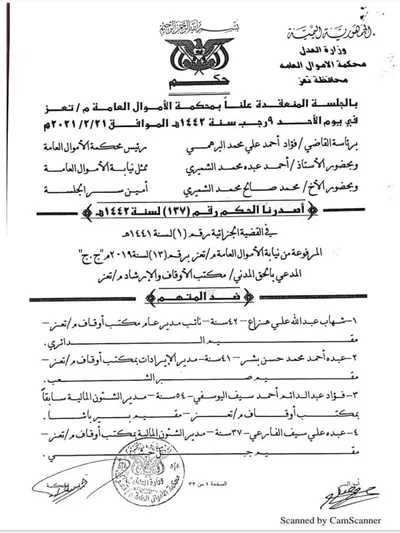 بسم الله الرحمن الرحيم
الجمهورية اليمنية
وزارة العدل
محكمة الاموال العامه
محافظة تعز
حكم
بالجلسة المنعقدة علناً بمحكمة الأموال العامة م/ تعز
في يوم الأحد ٩ رجب سنة ١٤٤٢هـ الموافق ٢٠٢١/٢/٢١م
برئاسة القاضي/ فؤاد أحمد علي محمد البرهمي رئيس محكمة الأموال العامة
وبحضور الأستاذ/ أحمد عبده محمد الشميري ممثل نيابة الأموال العامة
وبحضور الأخ/ محمد صالح محمد الشميري أمين سر الجلسة
أصدرنا الحكم رقم (١٣٧) لسنة ١٤٤٢هـ
في القضية الجزائية رقم (١) لسنة ١٤٤١هـ
المرفوعة من نيابة الأموال العامة م/ تعز برقم (١٣) لسنة ٢٠١٩م "ج.ج"
المدعي بالحق المدني/ مكتب الأوقاف والإرشاد م/ تعز
ضد المتهم
١- شهاب عبدالله علي هزاع - ٤٢ سنة - نائب مدير عام مكتب أوقاف م/ تعز -
مقيم الدائري.
٢- عبده أحمد محمد حسن بشر - ٤١ سنة - مدير الإيرادات بمكتب أوقاف م/ تعز -
مقيم صبر الشعب.
٣- فؤاد عبدالدائم أحمد سيف اليوسفي - ٥٤ سنة - مدير الشئون المالية سابقاً
بمكتب أوقاف م/ تعز - مقيم بير باشا.
٤- عبده علي سيف الفارعي - ٣٧ سنة - مدير الشئون المالية بمكتب أوقاف م/ تعز -
مقيم
الصفحة ١ من ٣٣
Scanned by CamScanner